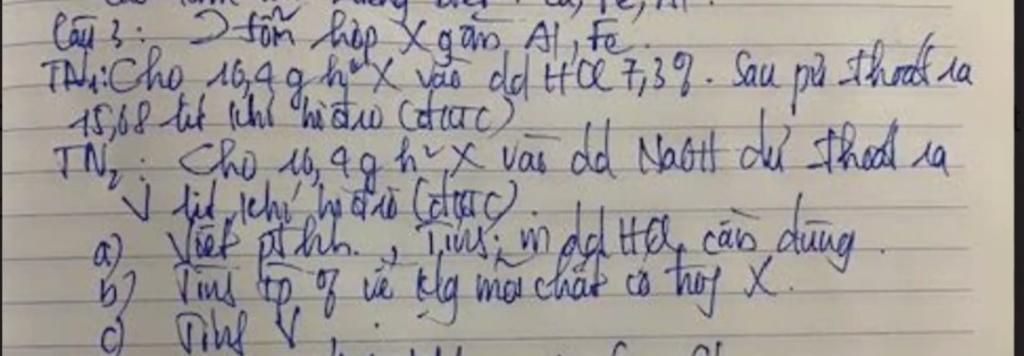 Câu 3: Hỗn hợp X gồm Al, Fe.
TN1: Cho 16,4 g h² X vào dd HCl 7,3%. Sau pứ thoát ra
15,68 lít khí hiđro (đktc)
TN2: Cho 16,4 g h² X vào dd NaOH dư thoát ra
V lít khí hiđro (đktc).
a) Viết pthh. Tính m dd HCl cần dùng.
b) Tính tp % về klg mỗi chất có trog X.
c) Tính V.